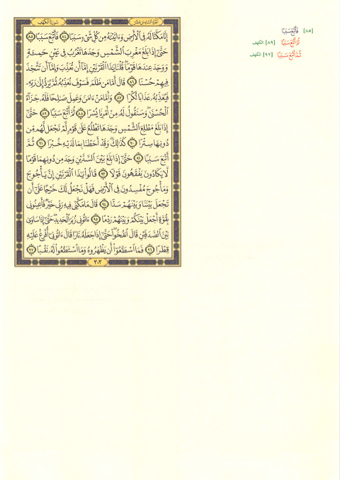 سورة الكهف
الجزء السادس عشر
إِنَّا مَكَّنَّا لَهُۥ فِى ٱلْأَرْضِ وَءَاتَيْنَٰهُ مِن كُلِّ شَىْءٍ سَبَبًا ٨٤ فَأَتْبَعَ سَبَبًا ٨٥
حَتَّىٰٓ إِذَا بَلَغَ مَغْرِبَ ٱلشَّمْسِ وَجَدَهَا تَغْرُبُ فِى عَيْنٍ حَمِئَةٍ
وَوَجَدَ عِندَهَا قَوْمًا قُلْنَا يَٰذَا ٱلْقَرْنَيْنِ إِمَّآ أَن تُعَذِّبَ وَإِمَّآ أَن تَتَّخِذَ
فِيهِمْ حُسْنًا ٨٦ قَالَ أَمَّا مَن ظَلَمَ فَسَوْفَ نُعَذِّبُهُۥ ثُمَّ يُرَدُّ إِلَىٰ رَبِّهِۦ
فَيُعَذِّبُهُۥ عَذَابًا نُّكْرًا ٨٧ وَأَمَّا مَنْ ءَامَنَ وَعَمِلَ صَٰلِحًا فَلَهُۥ جَزَآءً
ٱلْحُسْنَىٰ وَسَنَقُولُ لَهُۥ مِنْ أَمْرِنَا يُسْرًا ٨٨ ثُمَّ أَتْبَعَ سَبَبًا ٨٩ حَتَّىٰٓ
إِذَا بَلَغَ مَطْلِعَ ٱلشَّمْسِ وَجَدَهَا تَطْلُعُ عَلَىٰ قَوْمٍ لَّمْ نَجْعَل لَّهُم مِّن
دُونِهَا سِتْرًا ٩٠ كَذَٰلِكَ وَقَدْ أَحَطْنَا بِمَا لَدَيْهِ خُبْرًا ٩١ ثُمَّ
أَتْبَعَ سَبَبًا ٩٢ حَتَّىٰٓ إِذَا بَلَغَ بَيْنَ ٱلسَّدَّيْنِ وَجَدَ مِن دُونِهِمَا قَوْمًا
لَّا يَكَادُونَ يَفْقَهُونَ قَوْلًا ٩٣ قَالُوا۟ يَٰذَا ٱلْقَرْنَيْنِ إِنَّ يَأْجُوجَ
وَمَأْجُوجَ مُفْسِدُونَ فِى ٱلْأَرْضِ فَهَلْ نَجْعَلُ لَكَ خَرْجًا عَلَىٰٓ أَن
تَجْعَلَ بَيْنَنَا وَبَيْنَهُمْ سَدًّا ٩٤ قَالَ مَا مَكَّنِّى فِيهِ رَبِّى خَيْرٌ فَأَعِينُونِى
بِقُوَّةٍ أَجْعَلْ بَيْنَكُمْ وَبَيْنَهُمْ رَدْمًا ٩٥ ءَاتُونِى زُبَرَ ٱلْحَدِيدِ حَتَّىٰٓ إِذَا سَاوَىٰ
بَيْنَ ٱلصَّدَفَيْنِ قَالَ ٱنفُخُوا۟ حَتَّىٰٓ إِذَا جَعَلَهُۥ نَارًا قَالَ ءَاتُونِىٓ أُفْرِغْ عَلَيْهِ
قِطْرًا ٩٦ فَمَا ٱسْطَٰعُوٓا۟ أَن يَظْهَرُوهُ وَمَا ٱسْتَطَٰعُوا۟ لَهُۥ نَقْبًا ٩٧
٣٠٣
[٨٥] فَأَتْبَعَ سَبَبًا
ثُمَّ أَتْبَعَ سَبَبًا [٨٩] الكهف
ثُمَّ أَتْبَعَ سَبَبًا [٩٢] الكهف